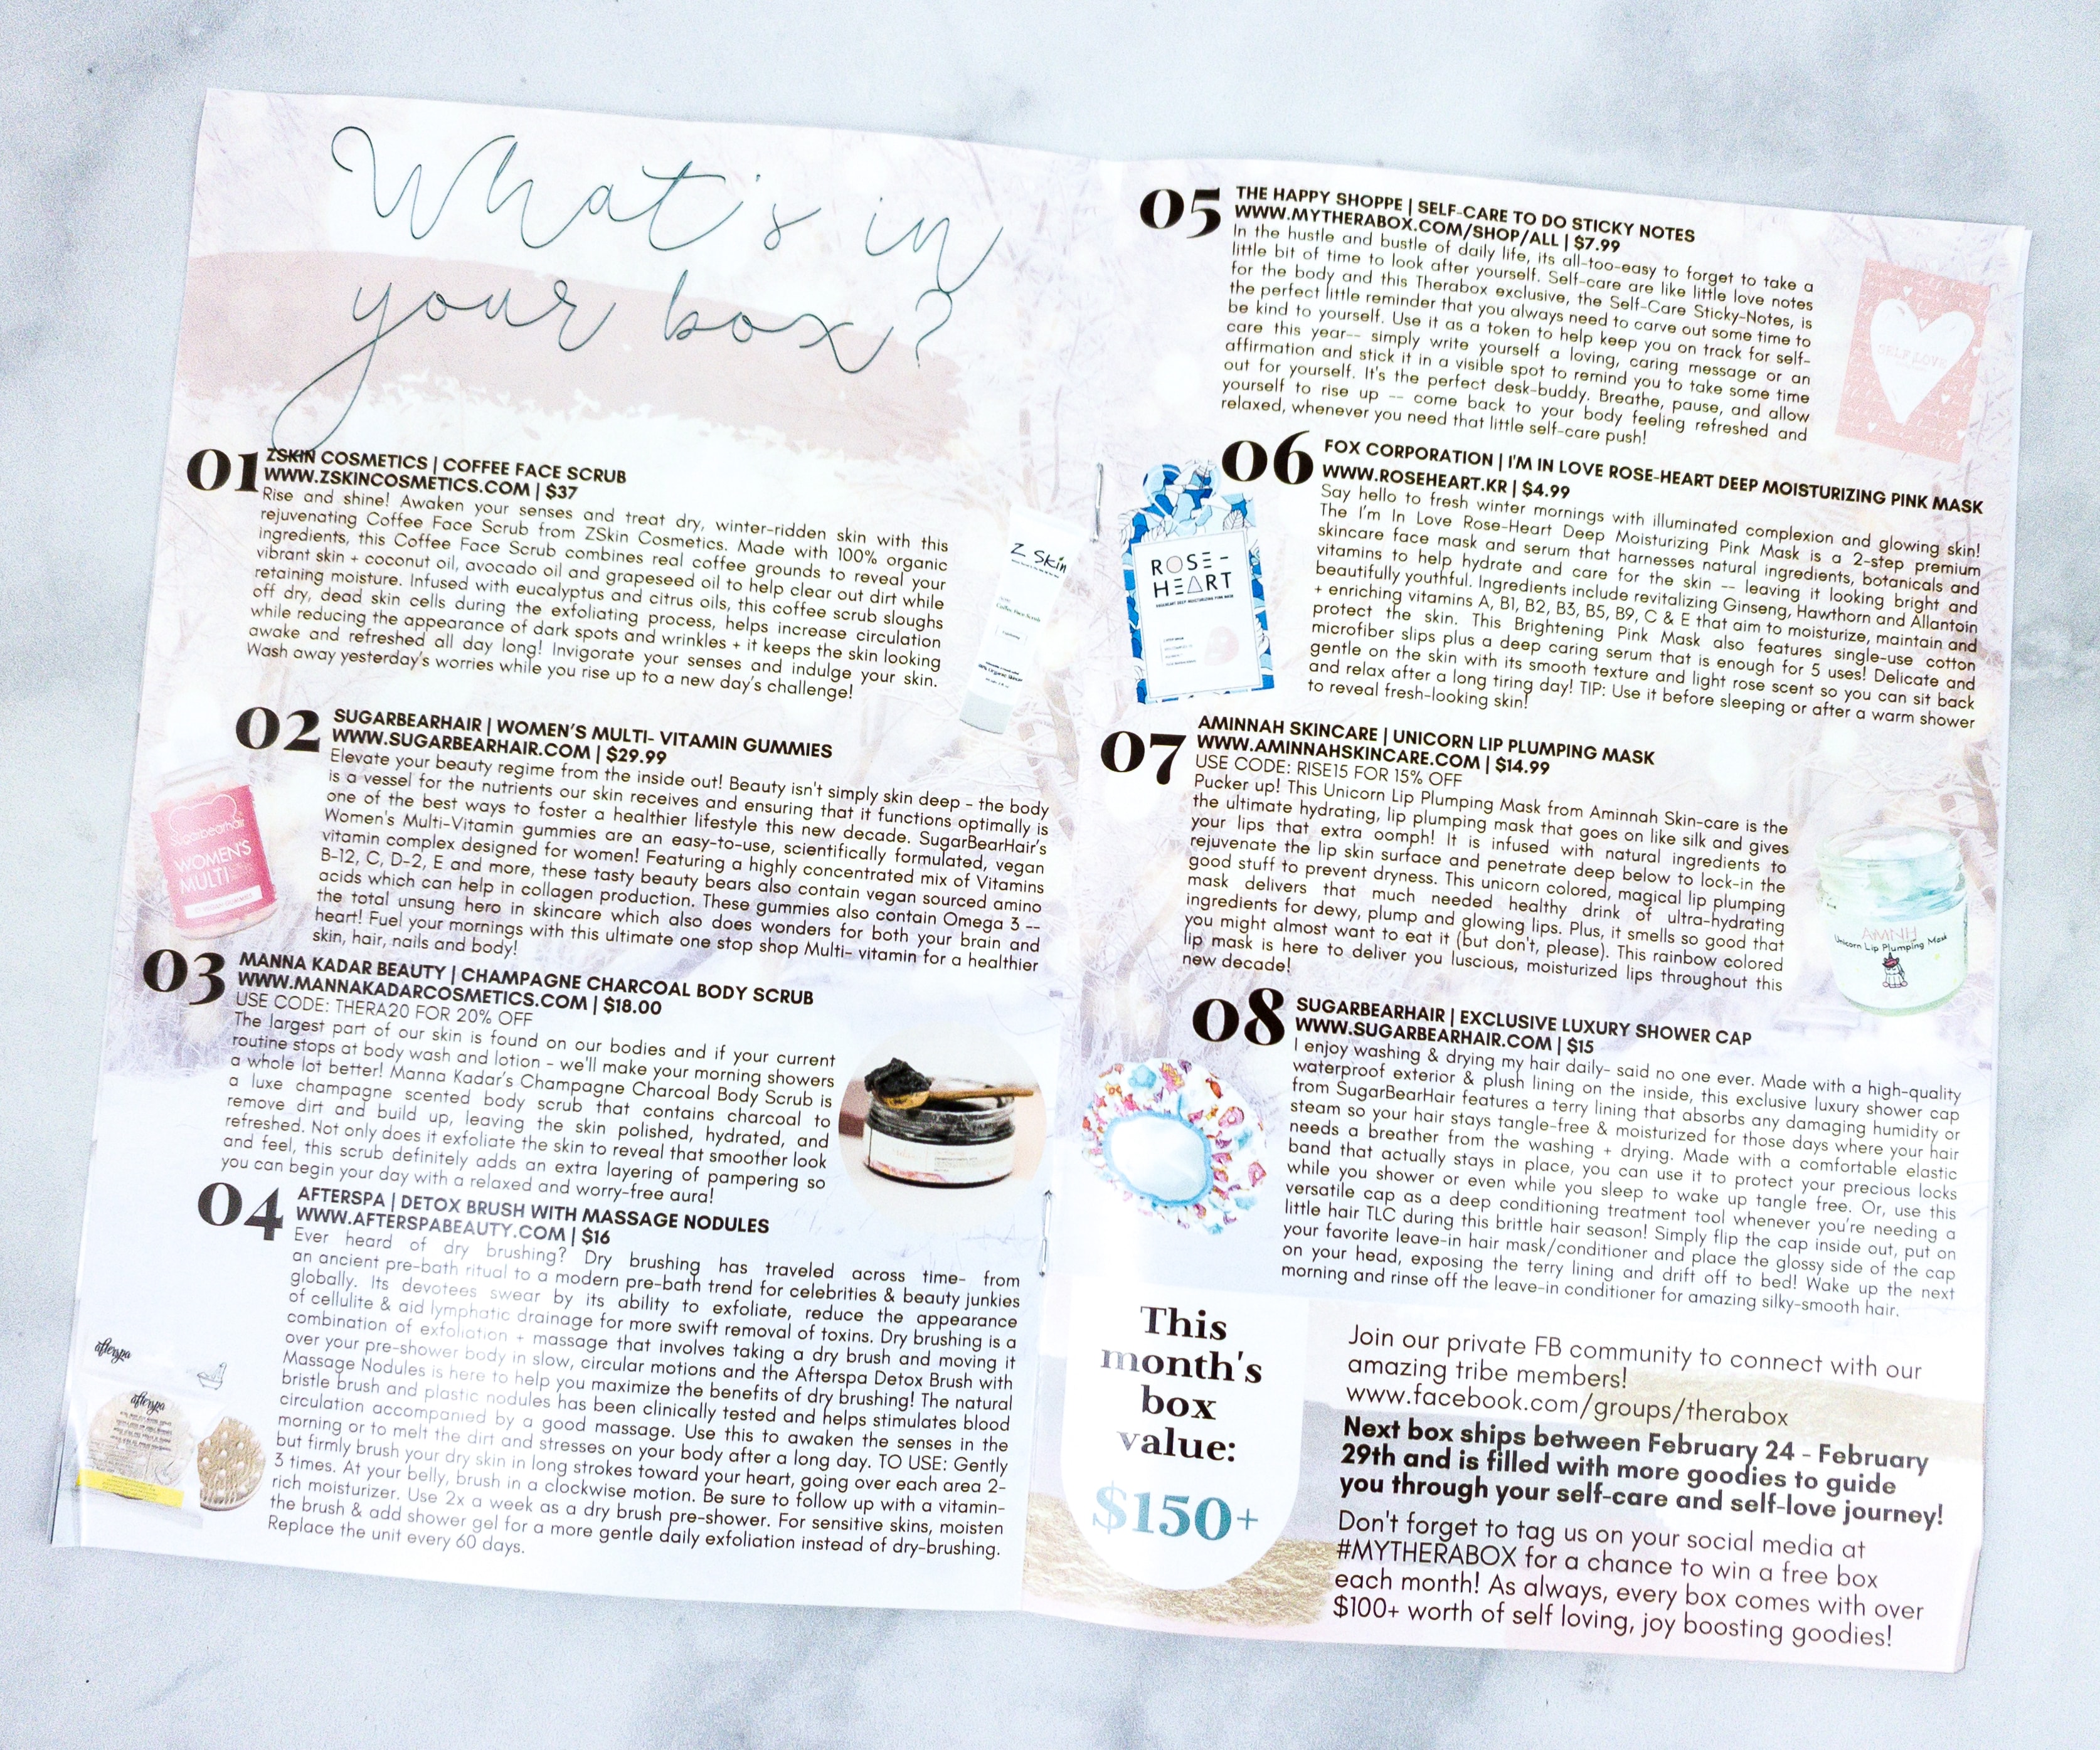 What's in
your box?
01
ZSKIN COSMETICS | COFFEE FACE SCRUB
WWW.ZSKINCOSMETICS.COM | $37
Rise and shine! Awaken your senses and treat dry, winter-ridden skin with this
rejuvenating Coffee Face Scrub from ZSkin Cosmetics. Made with 100% organic
ingredients, this Coffee Face Scrub combines real coffee grounds to reveal your
vibrant skin + coconut oil, avocado oil and grapeseed oil to help clear out dirt while
retaining moisture. Infused with eucalyptus and citrus oils, this coffee scrub sloughs
off dry, dead skin cells during the exfoliating process, helps increase circulation
while reducing the appearance of dark spots and wrinkles + it keeps the skin looking
awake and refreshed all day long! Invigorate your senses and indulge your skin.
Wash away yesterday's worries while you rise up to a new day's challenge!
Z Skin
Coffee Face Scrub
02
SUGARBEARHAIR | WOMEN'S MULTI- VITAMIN GUMMIES
WWW.SUGARBEARHAIR.COM | $29.99
Elevate your beauty regime from the inside out! Beauty isn't simply skin deep - the body
is a vessel for the nutrients our skin receives and ensuring that it functions optimally is
one of the best ways to foster a healthier lifestyle this new decade. SugarBearHair's
Women's Multi-Vitamin gummies are an easy-to-use, scientifically formulated, vegan
vitamin complex designed for women! Featuring a highly concentrated mix of Vitamins
B-12, C, D-2, E and more, these tasty beauty bears also contain vegan sourced amino
acids which can help in collagen production. These gummies also contain Omega 3 --
the total unsung hero in skincare which also does wonders for both your brain and
heart! Fuel your mornings with this ultimate one stop shop Multi- vitamin for a healthier
skin, hair, nails and body!
Sugarbearhair
WOMEN'S
MULTI
03
MANNA KADAR BEAUTY | CHAMPAGNE CHARCOAL BODY SCRUB
WWW.MANNAKADARCOSMETICS.COM | $18.00
USE CODE: THERA20 FOR 20% OFF
The largest part of our skin is found on our bodies and if your current
routine stops at body wash and lotion - we'll make your morning showers
a whole lot better! Manna Kadar's Champagne Charcoal Body Scrub is
a luxe champagne scented body scrub that contains charcoal to
remove dirt and build up, leaving the skin polished, hydrated, and
refreshed. Not only does it exfoliate the skin to reveal that smoother look
and feel, this scrub definitely adds an extra layering of pampering so
you can begin your day with a relaxed and worry-free aura!
04
AFTERSPA | DETOX BRUSH WITH MASSAGE NODULES
WWW.AFTERSPABEAUTY.COM | $16
Ever heard of dry brushing? Dry brushing has traveled across time- from
an ancient pre-bath ritual to a modern pre-bath trend for celebrities & beauty junkies
globally. Its devotees swear by its ability to exfoliate, reduce the appearance
of cellulite & aid lymphatic drainage for more swift removal of toxins. Dry brushing is a
combination of exfoliation + massage that involves taking a dry brush and moving it
over your pre-shower body in slow, circular motions and the Afterspa Detox Brush with
Massage Nodules is here to help you maximize the benefits of dry brushing! The natural
bristle brush and plastic nodules has been clinically tested and helps stimulates blood
circulation accompanied by a good massage. Use this to awaken the senses in the
morning or to melt the dirt and stresses on your body after a long day. TO USE: Gently
but firmly brush your dry skin in long strokes toward your heart, going over each area 2-
3 times. At your belly, brush in a clockwise motion. Be sure to follow up with a vitamin-
rich moisturizer. Use 2x a week as a dry brush pre-shower. For sensitive skins, moisten
the brush & add shower gel for a more gentle daily exfoliation instead of dry-brushing.
Replace the unit every 60 days.
afterspa
afterspa
05
THE HAPPY SHOPPE | SELF-CARE TO DO STICKY NOTES
WWW.MYTHERABOX.COM/SHOP/ALL | $7.99
In the hustle and bustle of daily life, its all-too-easy to forget to take a
little bit of time to look after yourself. Self-care are like little love notes
for the body and this Therabox exclusive, the Self-Care Sticky-Notes, is
the perfect little reminder that you always need to carve out some time to
be kind to yourself. Use it as a token to help keep you on track for self-
care this year-- simply write yourself a loving, caring message or an
affirmation and stick it in a visible spot to remind you to take some time
out for yourself. It's the perfect desk-buddy. Breathe, pause, and allow
yourself to rise up -- come back to your body feeling refreshed and
relaxed, whenever you need that little self-care push!
SELF LOVE
06
FOX CORPORATION | I'M IN LOVE ROSE-HEART DEEP MOISTURIZING PINK MASK
WWW.ROSEHEART.KR | $4.99
Say hello to fresh winter mornings with illuminated complexion and glowing skin!
The I'm In Love Rose-Heart Deep Moisturizing Pink Mask is a 2-step premium
skincare face mask and serum that harnesses natural ingredients, botanicals and
vitamins to help hydrate and care for the skin -- leaving it looking bright and
beautifully youthful. Ingredients include revitalizing Ginseng, Hawthorn and Allantoin
+ enriching vitamins A, B1, B2, B3, B5, B9, C & E that aim to moisturize, maintain and
protect the skin. This Brightening Pink Mask also features single-use cotton
microfiber slips plus a deep caring serum that is enough for 5 uses! Delicate and
gentle on the skin with its smooth texture and light rose scent so you can sit back
and relax after a long tiring day! TIP: Use it before sleeping or after a warm shower
to reveal fresh-looking skin!
ROSE-
HEART
07
AMINNAH SKINCARE | UNICORN LIP PLUMPING MASK
WWW.AMINNAHSKINCARE.COM | $14.99
USE CODE: RISE15 FOR 15% OFF
Pucker up! This Unicorn Lip Plumping Mask from Aminnah Skin-care is the
the ultimate hydrating, lip plumping mask that goes on like silk and gives
your lips that extra oomph! It is infused with natural ingredients to
rejuvenate the lip skin surface and penetrate deep below to lock-in the
good stuff to prevent dryness. This unicorn colored, magical lip plumping
mask delivers that much needed healthy drink of ultra-hydrating
ingredients for dewy, plump and glowing lips. Plus, it smells so good that
you might almost want to eat it (but don't, please). This rainbow colored
lip mask is here to deliver you luscious, moisturized lips throughout this
new decade!
AMNH
Unicorn Lip Plumping Mask
08
SUGARBEARHAIR | EXCLUSIVE LUXURY SHOWER CAP
WWW.SUGARBEARHAIR.COM | $15
I enjoy washing & drying my hair daily- said no one ever. Made with a high-quality
waterproof exterior & plush lining on the inside, this exclusive luxury shower cap
from SugarBearHair features a terry lining that absorbs any damaging humidity or
steam so your hair stays tangle-free & moisturized for those days where your hair
needs a breather from the washing + drying. Made with a comfortable elastic
band that actually stays in place, you can use it to protect your precious locks
while you shower or even while you sleep to wake up tangle free. Or, use this
versatile cap as a deep conditioning treatment tool whenever you're needing a
little hair TLC during this brittle hair season! Simply flip the cap inside out, put on
your favorite leave-in hair mask/conditioner and place the glossy side of the cap
on your head, exposing the terry lining and drift off to bed! Wake up the next
morning and rinse off the leave-in conditioner for amazing silky-smooth hair.
This
month's
box
value:
$150+
Join our private FB community to connect with our
amazing tribe members!
www.facebook.com/groups/therabox
Next box ships between February 24 - February
29th and is filled with more goodies to guide
you through your self-care and self-love journey!
Don't forget to tag us on your social media at
#MYTHERABOX for a chance to win a free box
each month! As always, every box comes with over
$100+ worth of self loving, joy boosting goodies!